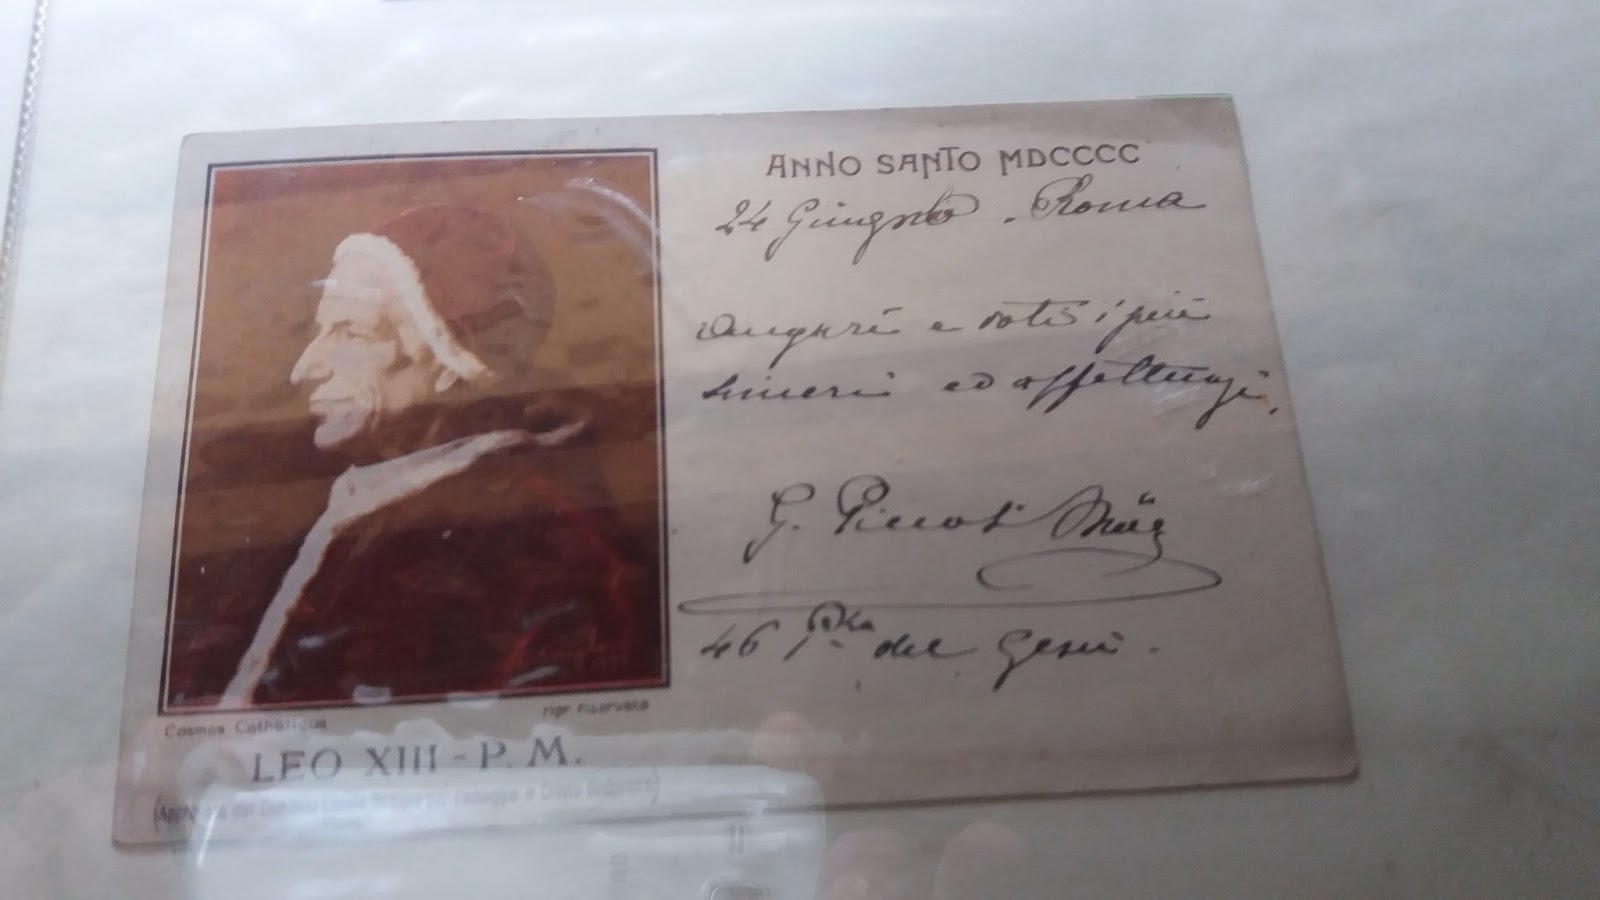 ANNO SANTO MDCCCC
24 Giugno . Roma
Auguri e voti i più
sinceri ed affettuosi.
G.
46 del Gesù.
Cosmos Catholicus
ripr riservata
LEO XIII - P. M.